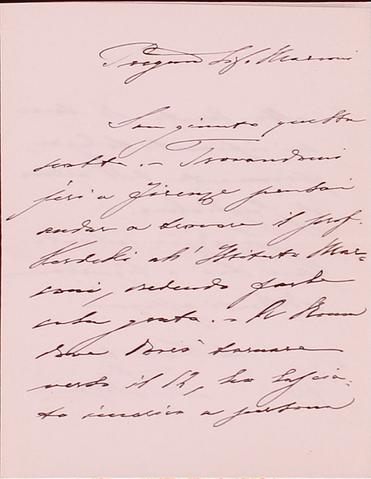 Pregmo Sig. Marconi
Son giunto questa
. - Trovandomi
ieri a Firenze pensai
andar a trovare il prof.
all' Istituto Mar=
coni, credendo farle
cosa grata. - A Roma
dove dovrò tornare
verso il 12, ho lascia-
to incarico a persona